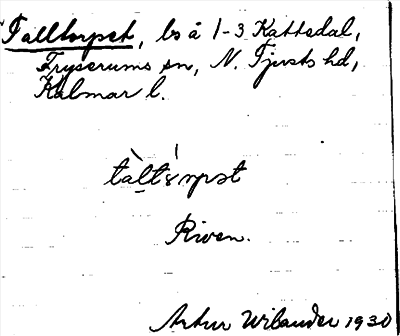 Talltorpet, ls å 1-3 Kattedal,
Tryserums sn, N. Tjusts hd,
Kalmar l.
tàlt́ɤrpət
Riven.
Artur Wilander 1930